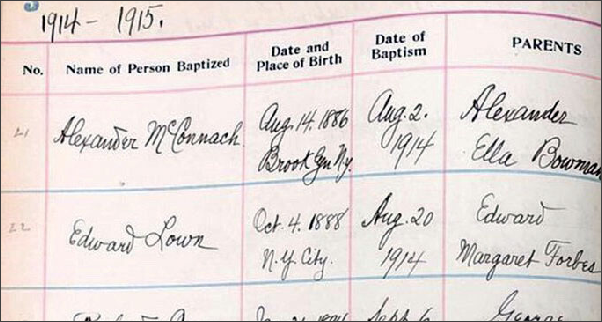 1914 - 1915.
No. Name of Person Baptized Date and Place of Birth Date of Baptism PARENTS
21 Alexander McConnach Aug. 14. 1886 Aug. 2. Alexander
Brooklyn Ny. 1914 Ella Bowman
22 Edward Lown Oct. 4. 1888 Aug. 20 Edward
N.Y. City. 1914 Margaret Forbes
George